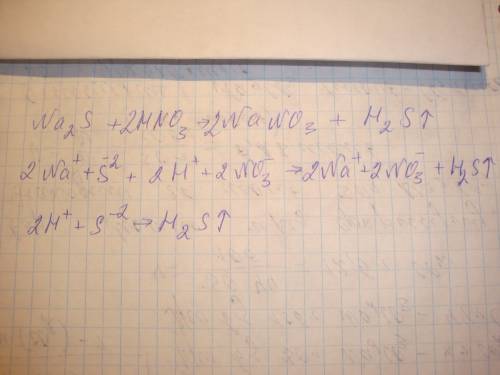 Na₂S + 2HNO₃ → 2NaNO₃ + H₂S↑
2Na⁺ + S⁻² + 2H⁺ + 2NO₃⁻ → 2Na⁺ + 2NO₃⁻ + H₂S↑
2H⁺ + S⁻² → H₂S↑